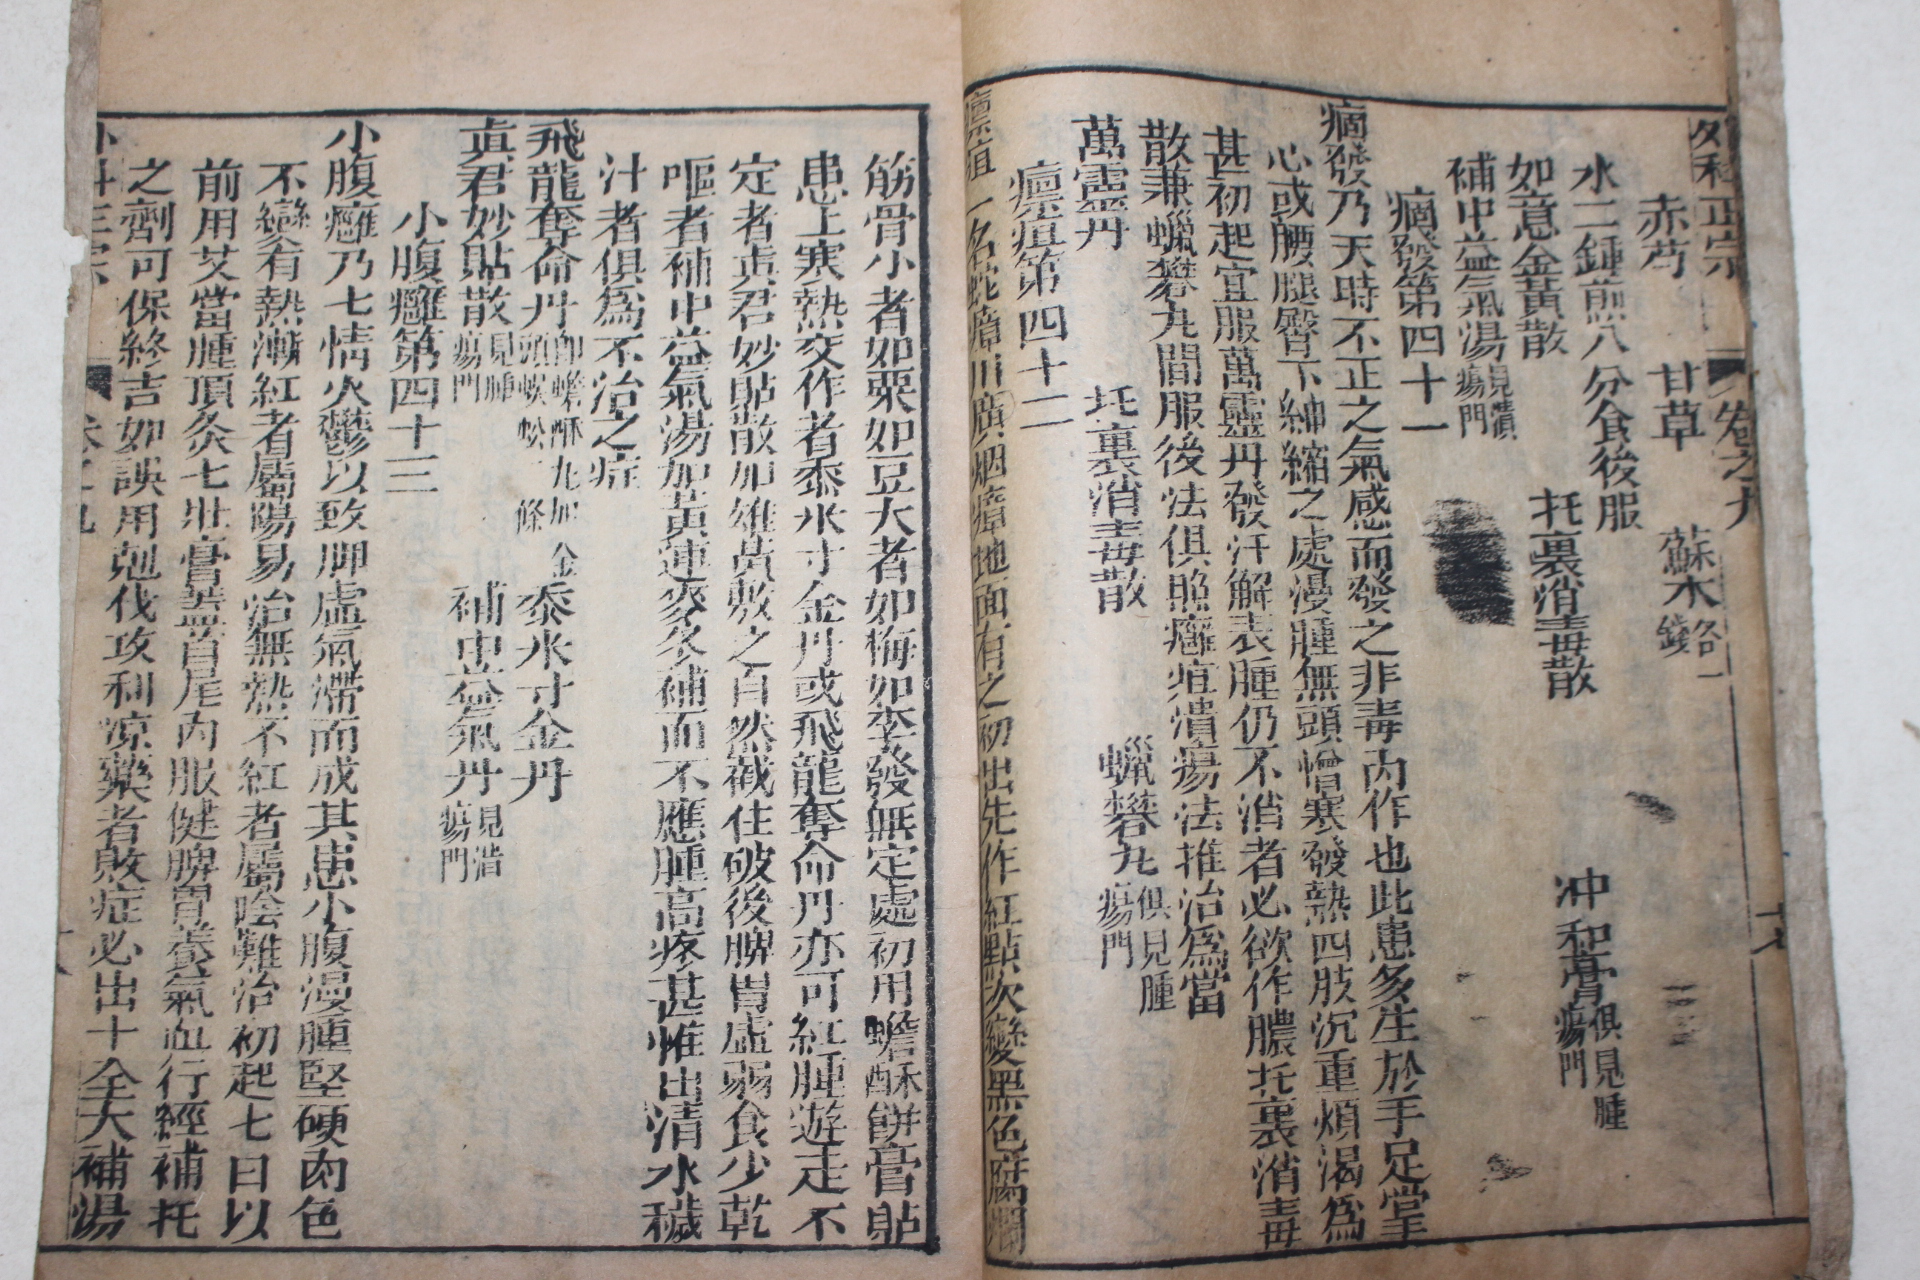 外科正宗 卷之九
赤芍 甘草 蘇木各一錢
水二鍾煎八分食後服
如意金黃散 托裏消毒散 冲和膏俱見腫瘍門
補中益氣湯見潰瘍門
痼發第四十一
痼發乃天時不正之氣感而發之非毒內作也此患多生於手足掌
心或腰腿臀下紳縮之處漫腫無頭憎寒發熱四肢沉重煩渴爲
甚初起宜服萬靈丹發汗解表腫仍不消者必欲作膿托裏消毒
散兼蠟礬丸間服後法俱照癰疽潰瘍法推治爲當
萬靈丹 托裏消毒散 蠟礬丸俱見腫瘍門
㾦疽第四十二
㾦疽一名蛇瘴川廣烟瘴地面有之初出先作紅點次變黑色腐爛
筋骨小者如粟如豆大者如梅如李發無定處初用蟾酥餅膏貼
患上寒熱交作者黍米寸金丹或飛龍奪命丹亦可紅腫遊走不
定者眞君妙貼散加雄黃敷之自然截住破後脾胃虛弱食少乾
嘔者補中益氣湯加黃連麥冬補而不應腫高疼甚惟出清水穢
汁者俱爲不治之症
飛龍奪命丹卽蟾酥丸加金頭蜈蚣一條 黍米寸金丹
眞君妙貼散見腫瘍門 補中益氣丹見潰瘍門
小腹癰第四十三
小腹癰乃七情火鬱以致脾虛氣滯而成其患小腹漫腫堅硬肉色
不變有熱漸紅者屬陽易治無熱不紅者屬陰難治初起七日以
前用艾當腫頂灸七壯膏蓋首尾內服健脾胃養氣血行經補托
之劑可保終吉如誤用剋伐攻利凉藥者敗症必出十全大補湯
外科正宗 卷之九